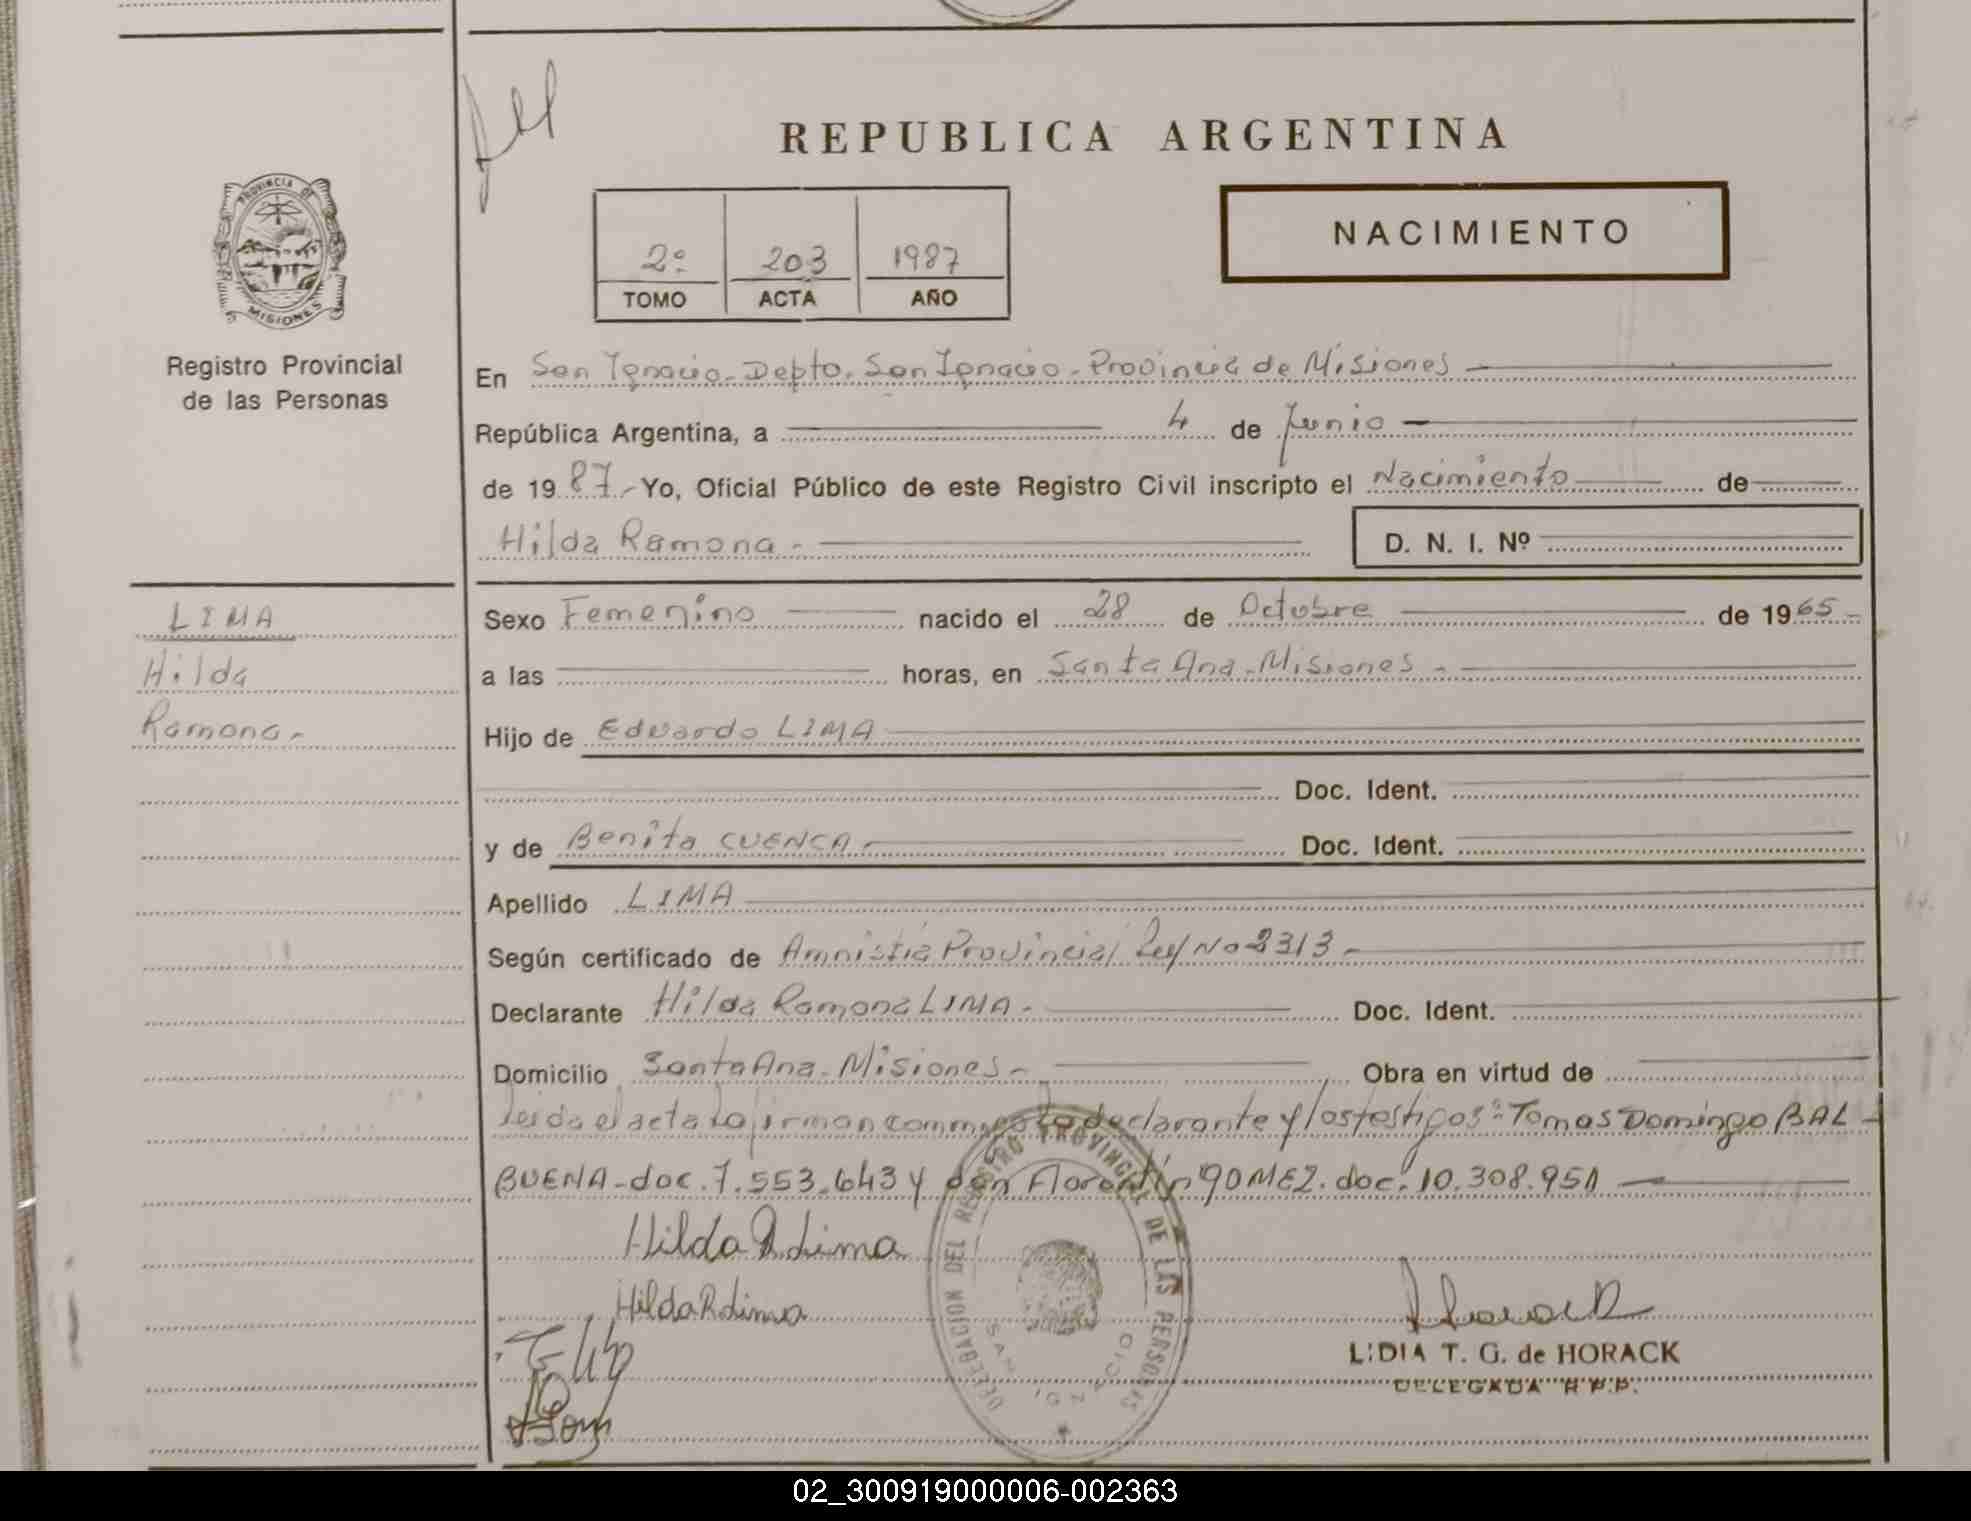 REPUBLICA ARGENTINA
PROVINCIA DE
MISIONES
Registro Provincial
de las Personas
2º 203 1987
TOMO ACTA AÑO
NACIMIENTO
En San Ignacio - Depto. San Ignacio - Provincia de Misiones
República Argentina, a 4 de Junio
de 1987.- Yo, Oficial Público de este Registro Civil inscripto el Nacimiento de
Hilda Ramona -
D. N. I. Nº
LIMA
Hilda
Ramona -
Sexo Femenino nacido el 28 de Octubre de 1965-
a las horas, en Santa Ana - Misiones -
Hijo de Eduardo LIMA
Doc. Ident.
y de Benita CUENCA - Doc. Ident.
Apellido LIMA
Según certificado de Amnistia Provincial Ley No 2313 -
Declarante Hilda Ramona LIMA - Doc. Ident.
Domicilio Santa Ana - Misiones - Obra en virtud de
leida el acta la firman conmigo la declarante y los testigos: Tomas Domingo BAL-
BUENA - doc. 7.553.643 y don Florentin GOMEZ. doc. 10.308.951
Hilda R Lima
Hilda R Lima
DELEGACION DEL REGISTRO PROVINCIAL DE LAS PERSONAS
SAN IGNACIO
LIDIA T. G. de HORACK
DELEGADA R.P.P.
02_300919000006-002363